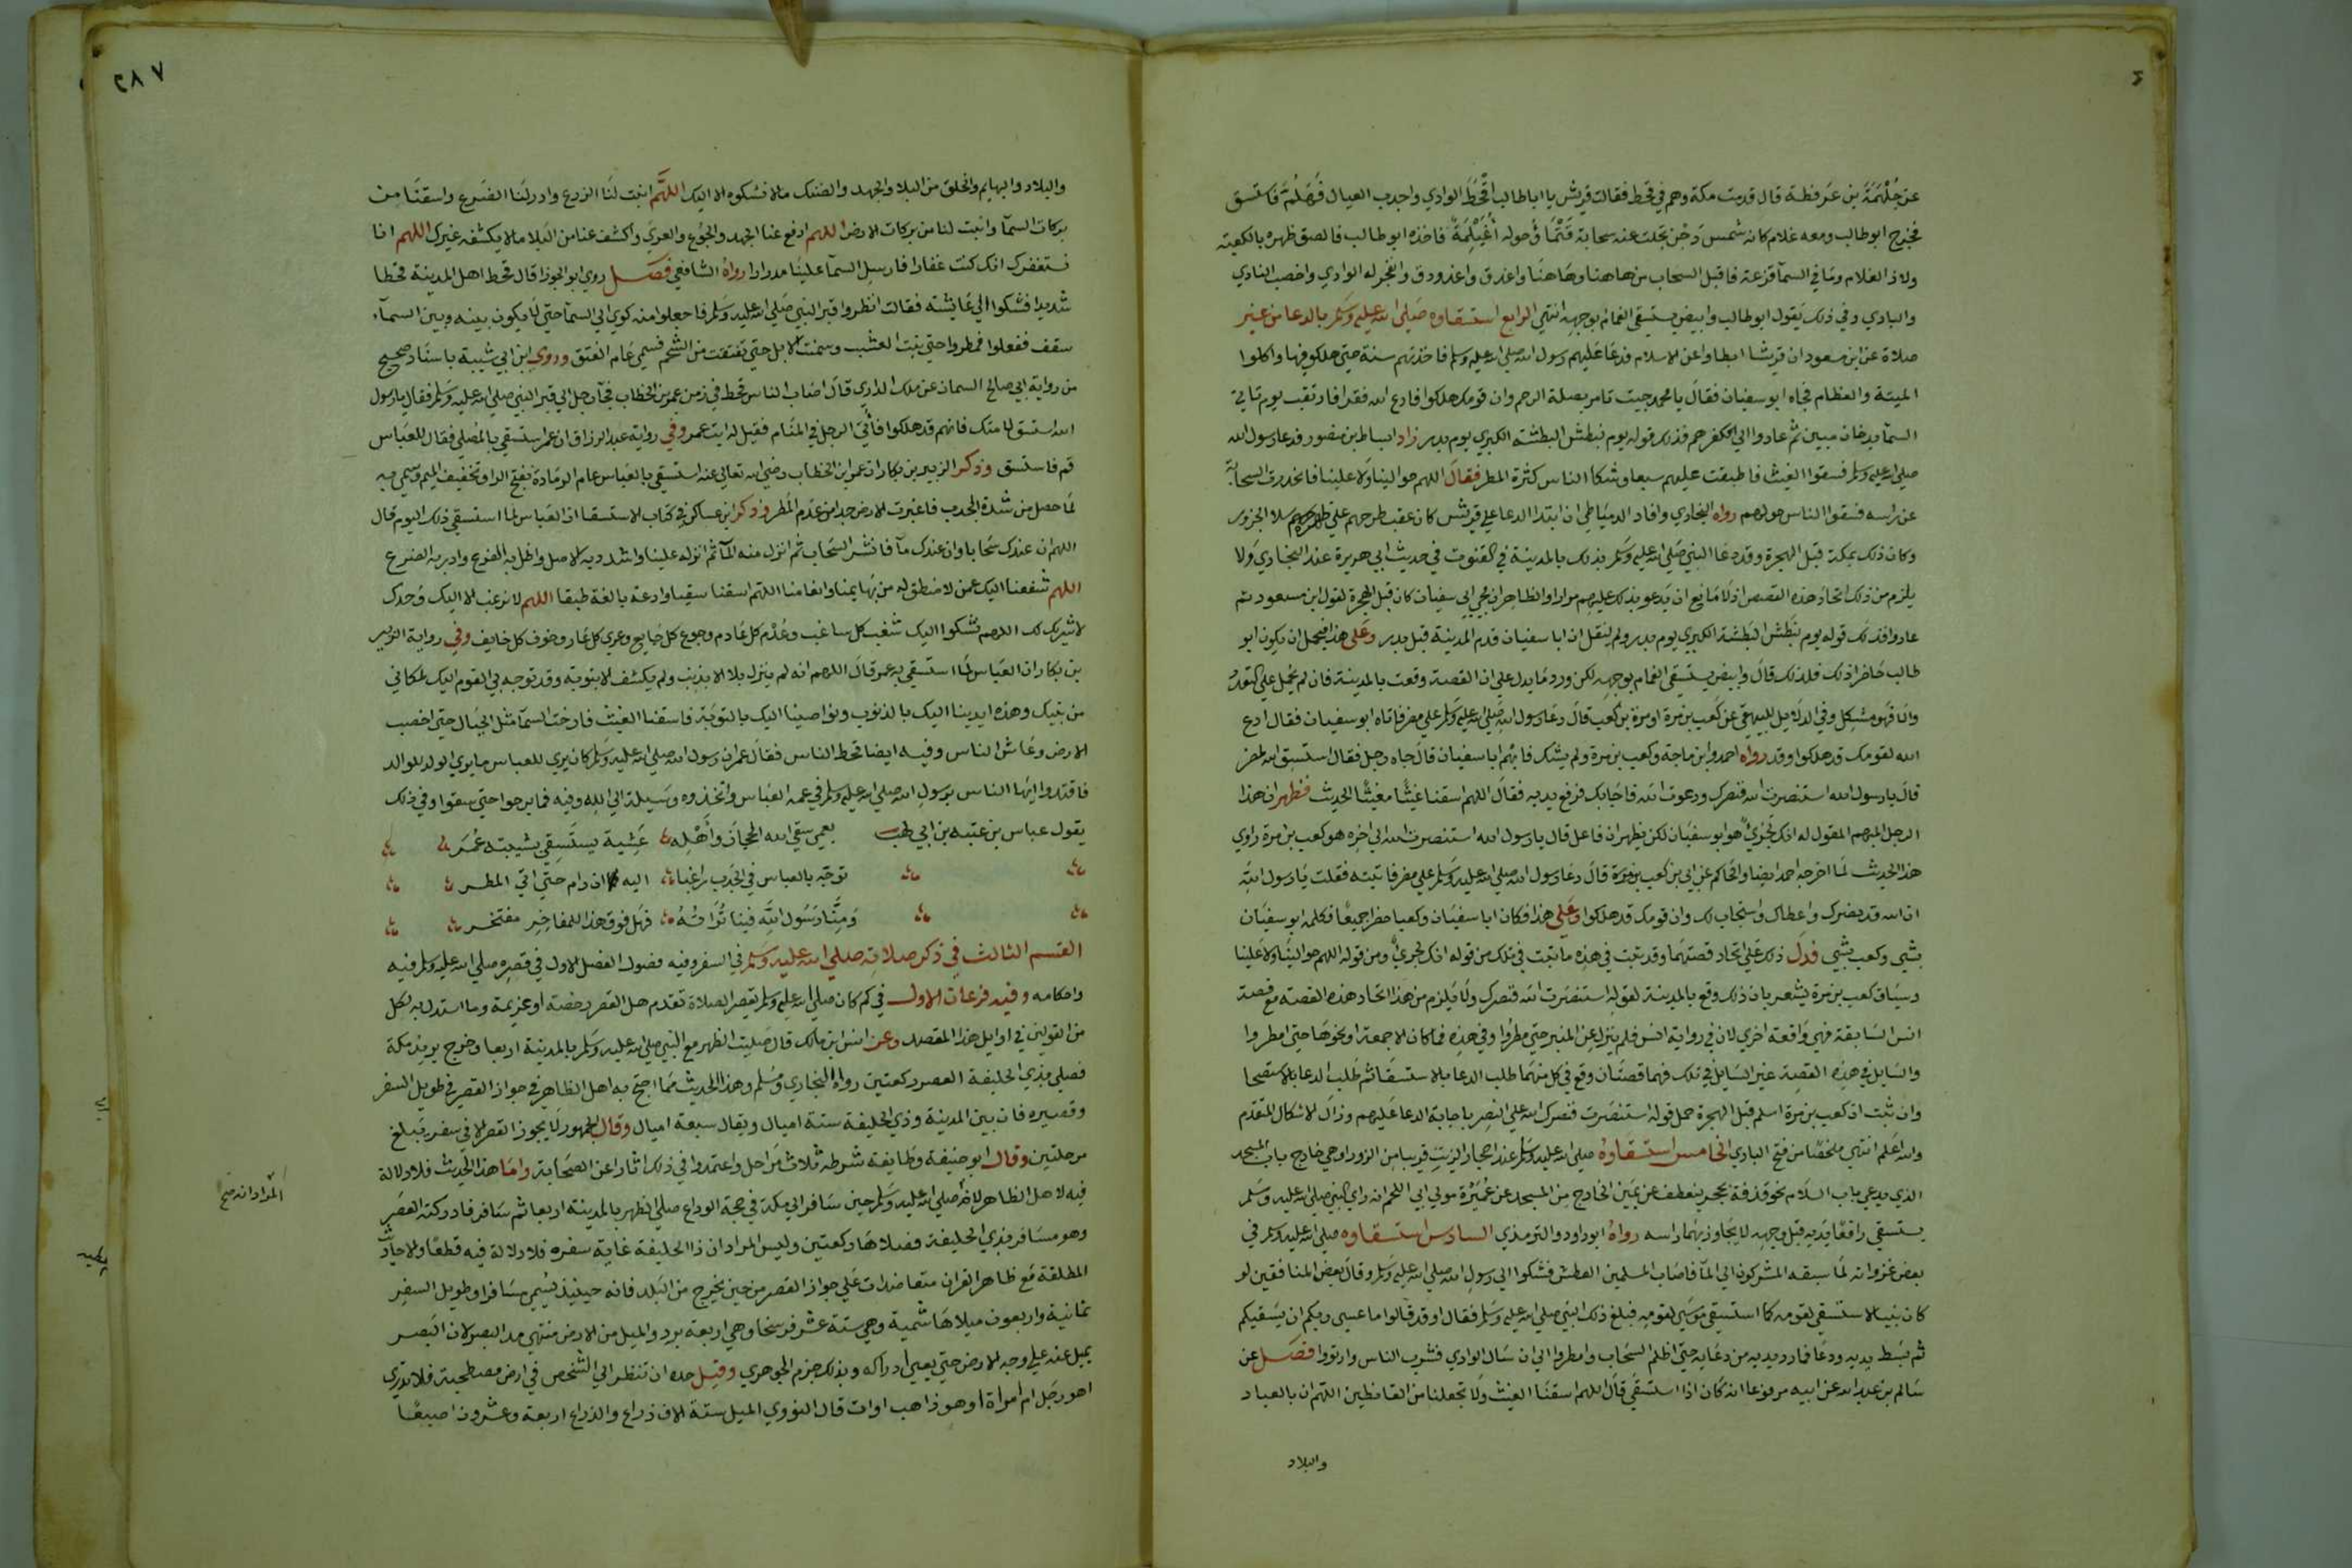 عن جُلْهُمَةَ بن عُرفطة قال قدمت مكة وهم في قحط فقالت قريش يا اباطالب اقْحَطَ الوادي واجدب العيال فَهَلُمَّ فاستسق
فخرج ابوطالب ومعه غلام كانه شمس دَجْن تجلت عنه سحابة قَتْمَا وحوله أُغَيْلِمَةٌ فاخذه ابوطالب فالصق ظهره بالكعبة
ولاذ الغلام وما في السمآ قزعة فاقبل السحاب من هاهنا وهاهنا واغدق واغدودق وانفجر له الوادي واخصب النادي
والبادي وفي ذلك يَقول ابوطالب وابيض يستسقى الغمام بوجهه انتهي الرابع استسقاوه صَلى الله عليه وسَلم بالدعا من غير
صلاة عن ابن مسعود ان قريشا ابطاوا عن الاسلام فدعَا عليهم رسول الله صلى الله عليه وسلم فاخذتهم سنة حتى هلكو فيها واكلوا
الميتة والعظام فجَاه ابوسفيان فقالَ يا محمد جيت تامر بصلة الرحم وان قومك هلكوا فادع الله فقرا فارتقب يوم تاتي
السمآ بدخان مبين ثم عادوا الي كفرهم فذلك قوله يوم نبطش البطشة الكبري يوم بدر زاد اسباط بن منصور فدعا رسول الله
صلي الله عليه وسلم فسقوا الغيث فاطبقت عليهم سبعا وشكا الناس كثرة المطر فقالَ اللهم حوالينا وَلا علينا فانحدرت السحابة
عن راسه فسقوا الناس حولهم رواه البخاري وافاد الدميَاطي ان ابتدا الدعا علي قريش كان عقب طرحهم علي ظهره سلا الجزور
وكان ذلك بمكة قبل الهجرة وقد دعَا النبي صَلى الله عليه وسَلم بذلك بالمدينة في القنوت في حديث ابي هريرة عند البخاري وَلا
يلزم من ذلك اتحاد هذه القصص اذلَا مَانع ان يَدعو بذلك عليهم مرارا والظاهر ان مجي ابي سفيان كان قبل الهجرة لقول ابن مسعود ثم
عادوا فذلك قوله يوم نَبطش البَطشة الكبري يوم بدر ولم يُنقل ان ابا سفيان قدم المدينة قبل بدر وعَلى هذا فيحمل ان يكون ابو
طالب حَاضرا ذلك فلذلك قالَ وابيض يستسقى الغمام بوجهه لكن ورد مَا يدل علي ان القصة وقعت بالمدينة فان لم يحمل علي التعدد
والا فهو مشكِل وفي الدلَايل للبيهقي عن كَعب بن مرة او مرة بن كعب قالَ دعَا رسول الله صَلى الله عليه وسَلم علي مضر فاتاه ابوسفيان فقال ادع
الله لقومك قد هلكوا وقد رواه احمد وابن ماجة وكعب بن مرة ولم يشك فابهم ابا سفيان قالَ جاه رجل فقال استسق الله لمضر
قالَ يا رسول الله استنصرت الله فنصرك ودعوت الله فاجابك فرفع يديه فقالَ اللهم اسقنا غيثًا مغيثًا الحديث فظهر ان هذا
الرجل المبهم المقول له انك لجريٌ هو ابوسفيَان لكن يظهر ان فاعل قال يا رسول الله استنصرت الله الي اخره هو كعب بن مرة راوي
هذا الحديث لما اخرجه احمد ايضا والحاكم عن ابي بن كعب بن مرة قالَ دعَا رسول الله صلي الله عليه وسَلم علي مضر فاتيته فقلت يَا رسول الله
ان الله قد نصرك واعطاك واستجاب لك وان قومك قد هلكوا وعَلي هذا فكان ابا سفيَان وكعبا حضرا جميعًا فكلمه ابوسفيَان
بشي وكعب بشي فدلَ ذلك علَي اتحاد قصتهمَا وقد ثبت في هذه ما ثبت في تلك من قوله انك لجريٌ ومن قوله اللهم حوالينَا ولا علينا
وسيَاق كعب بن مرة يشعر بان ذلك وقع بالمدينة لقوله استنصَرت الله فنصرك ولَا يَلزم من هذا اتحاد هذه القصة مع قصة
انس السَابقة فهي وَاقعة اخري لان في رواية انس فلم ينزل عن المنبر حتي مُطرُوا وفي هذه فما كان الا جمعة او نحوهَا حتي امطروا
والسَايل في هذِه القصة غير السَايل في تلك فهما قصتَان وقع في كل منهَما طلب الدعا بالاستسقا ثم طَلب الدعا بالاستصحا
وان ثبت ان كعب بن مرة اسلم قبل الهجرة حمل قوله استنصَرت فنصرك الله علي النصر باجابة الدعا عَليهم وزالَ الاشكال المتقدّم
والله اعَلم انتهي ملخصًا من فتح الباري الخامس استسقاوُه صلى الله عليه وسَلم عند احجار الزيت قريبا من الزورا وهي خارج باب المسجد
الذي يدعي باب السَلام نحو قذفة بحجر ينعطف عن يمين الخارج من المسجد عن عُمَيْرة مولي ابي اللحم انه راي النبي صلى الله عليه وسَلم
يستسقي رافعًا يَديه قبل وجهه لا يجَاوز بهمَا راسه رواهُ ابوداود والترمذي السادس استسقاوه صلى الله عليه وسلم في
بعض غزواته لمَا سبقه المشركون الي المآ فاصَاب المسلمين العطش فشكوا الي رسول الله صلي الله عليه وسَلم وقالَ بعض المنافقين لو
كان نبيا لاستسقي لقومه كما استسقي موسَي لقومه فبلغ ذلك النبي صلى الله عليه وسَلم فقال اوقد قَالوا ما عسي ربكم ان يسَقيكم
ثم بسَط يديه ودعَا فما رد يديه من دعَايه حتيَ اظلم السَحاب وامطروا الي ان سَال الوادي فشرب الناس وارتووا فصَــل عن
سَالم بن عبد الله عن ابيه مرفوعا انه كَان اذا استسقَي قالَ اللهم اسقنَا الغيث ولَا تجعلنا من القانطين اللهم ان بالعباد
والبلاد
٢٨٧
والبلاد والبهايم والخلق من البلا والجهد والضنك مالا نشكوه الا اليك اللهَّم انبت لنَا الزرع وادر لنَا الضَرع واسقنَا من
بركات السمآ وانبت لنا من بركات الارض اللهم ارفع عنا الجهد والجوُع والعري واكشف عنا من البَلا مالا يكشفه غيرك اللهم انا
نستغفرك انك كنت غفارا فارسِل السمآ علينَا مدرارا رواهُ الشافعي فصَــل روي ابوالجوزا قال قحط اهل المدينة قحطا
شديدا فشكوا الي عَايشة فقالت انظروا قبر النبي صَلى الله عليه وسَلم فاجعلوا منه كوي الي السمآ حتي لَا يكون بينه وبين السمآء
سقف ففعلوا فمطروا حتي نبت العشب وسمنت الابل حتي تفتقت من الشحم فسمي عَام الفَتق وروي ابن ابي شيبة باسنَاد صحيح
من رواية ابي صالح السمان عن ملك الداري قالَ اصَاب الناس قحط في زمن عمر بن الخطاب فجآ رجل الي قبر النبي صلي الله عليه وسَلم فقال يا رسول
الله استسق لامتك فانهم قد هلكوا فأتيَ الرجل في المنَام فقيل له ايت عمر وفي رواية عبد الرزاق ان عمر استسقي بالمُصلي فقال للعبَاس
قم فاستسق وذكر الزبير بن بكار ان عمر ابن الخطاب رضي الله تعالي عنه استسقي بالعبَاس عام الرمَادة بفتح الرا وتخفيف الميم وسمي به
لمَا حصل من شدة الجدب فاغبَرت الارض جدا من عدَم المَطر وذكر ابن عساكر في كتَاب الاستسقا ان العَباس لما استسقي ذلك اليوم قال
اللهم ان عندك سَحَابا وان عندك مآ فانشر السَحاب ثم انزل منه المآ ثم انزله علينا واشدد به الاصل واطل به الفرع وادر به الضرع
اللهم شفعنا اليك عمن لا منطق له من بهَايمنا وانعامنا اللهم اسقنا سقيا وادعة بالغة طبقا اللهم لا نرغب الا اليك وحدك
لا شريك لك اللهم نشكوا اليك سَغَب كل ساغب وعُدْم كل عَادم وجوع كل جَايع وعري كل عَار وخوف كل خايف وفي رواية الزبير
بن بكار ان العبَاس لما استسقي به عمر قالَ اللهم انه لم ينزل بلا الا بذنب ولم يكشف الا بتوبة وقد توجه بي القوم اليك لمكاني
من نبيك وهذه ايدينا اليك بالذنوب ونواصينا اليك بالتوبَة فاسقنا الغيث فارخت السمآ مثل الجبَال حتي اخصبت
الارض وعَاش الناس وفيه ايضا قحط الناس فقالَ عمر ان رسول الله صلى الله عليه وسَلم كان يري للعباس ما يري الولد للوالد
فاقتدوا ايهَا الناس برَسولِ الله صلي الله عليه وسلم في عمه العبَاس واتخذوه وسَيلة الي الله وفيه فما برحوا حتي سقوا وفي ذلك
يقول عباس بن عتبة بن ابي لهب بعمي سقي الله الحجازَ وأَهْلِه عَشِية يستَسقِي بشيبته عُمَر
توجّه بالعباس في الجَدب رَاغبا اليه فما ان رام حتي اتي المطر
وَمِنَّا رسَول اللَّه فينا تُرَاثُهُ فهَل فوق هذا للمفاخِر مفتخر
القسم الثالث في ذكر صلاته صلي الله عليه وسَلم في السفر وفيه فصول الفصل الاول في قصره صلي الله عليه وسلم فيه
واحكامه وفيه فرعان الاول في كم كان صلي الله عليه وسلم يقصر الصلاة تقدم هل القصر رخصة أو عزيمة وما استدل به لكل
من القولين في اوايل هذا المقصد وعن انس ابن مالك قالَ صَليت الظهر مع النبي صلي الله عليه وسَلم بالمدينة اربعا وخرج يريد مكة
فصلي بذي الحليفة العصر ركعتين رواهُ البخاري ومُسَلم وهذا الحديث ممَا احتج به اهل الظاهر في جواز القصر في طويل السفر
وقصيره فان بين المدينة وذي الحليفة ستة اميال ويقال سبعة اميال وقال الجمهور لَا يجوز القصر الا في سفر يبَلغ
مرحلتين وقال ابوحنيفة وطَايفة شرطه ثلاث مَراحل واعتمدوا في ذلك اثارا عن الصحَابة وامَا هذا الحديث فلا دلالة
فيه لاهل الظاهر لانه صلي الله عليه وسَلم حين سَافر الي مكة في حجة الوداع صلي الظهر بالمدينة اربعا ثم سَافر فادركته العصَر
وهو مسَافر بذي الحليفة فصَلاهَا ركعتين وليس المراد ان ذا الحليفة غاية سفره فلا دلالة فيه قطعًا والاحاديث
المطلقة مَع ظاهر القران متعاضدات علَي جواز القصر من حين يخرج من البَلد فانه حينيذ يُسمي مسَافرا وطويل السفر
ثمانية واربعون ميلا هَاشمية وهي ستة عشر فرسخا وهي اربعة برد والميل من الارض منتهي مد البصر لان البَصر
يميل عنه علي وجه الارض حتي يفني ادراكه وبذلك جزم الجوهري وقيل حده ان تنظر الي الشخص في ارض مصطحبة فلا تدري
اهو رجَل ام امراة او هو ذاهب او ات قال النووي الميل ستة الاف ذراع والذراع اربعة وعشرون اصبعًا
المراد انه صح